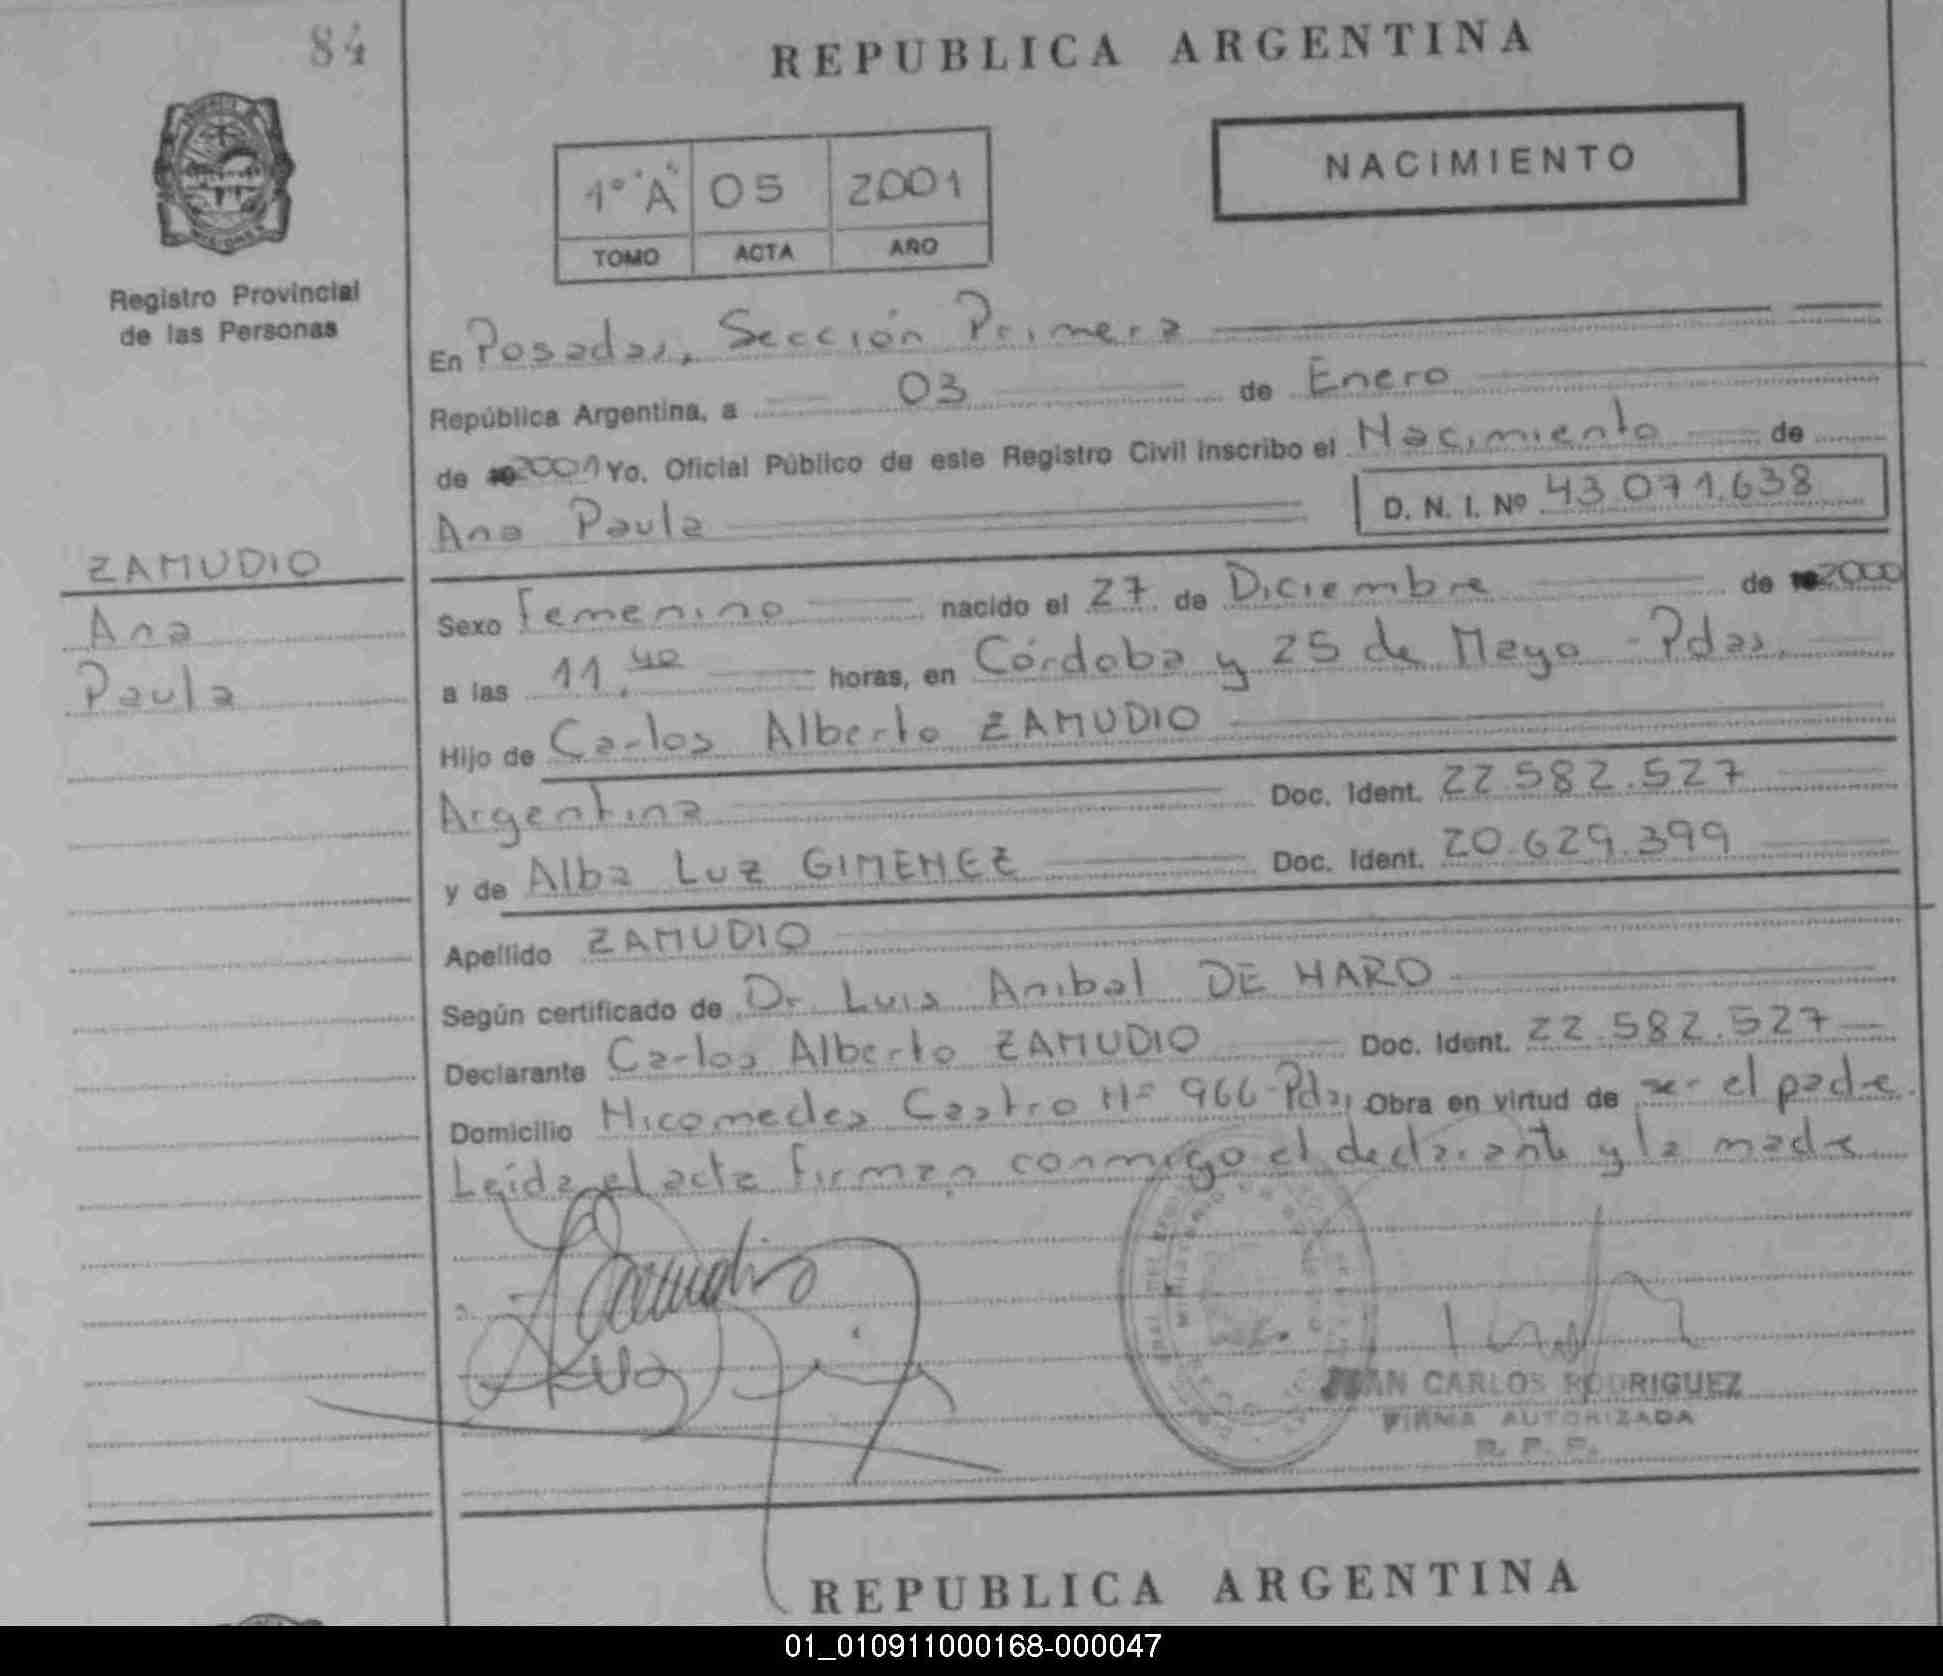 84
REPUBLICA ARGENTINA
NACIMIENTO
1º "A" 05 2001
TOMO ACTA AÑO
Registro Provincial
de las Personas
En Posadas, Sección Primera
República Argentina, a 03 de Enero
de 2001 Yo. Oficial Público de este Registro Civil inscribo el Nacimiento de
Ana Paula D. N. I. Nº 43.071.638
ZAMUDIO
Ana
Paula
Sexo Femenino nacido el 27 de Diciembre de 2000
a las 11,40 horas, en Córdoba y 25 de Mayo - Pdas.
Hijo de Carlos Alberto ZAMUDIO
Argentina Doc. Ident. 22.582.527
y de Alba Luz GIMENEZ Doc. Ident. 20.629.399
Apellido ZAMUDIO
Según certificado de Dr. Luis Anibal DE HARO
Declarante Carlos Alberto ZAMUDIO Doc. Ident. 22.582.527
Domicilio Nicomedes Castro Nº 966-Pdas, Obra en virtud de ser el padre.
Leída el acta firman conmigo el declarante y la madre
JUAN CARLOS RODRIGUEZ
FIRMA AUTORIZADA
R. P. P.
REPUBLICA ARGENTINA
01_010911000168-000047